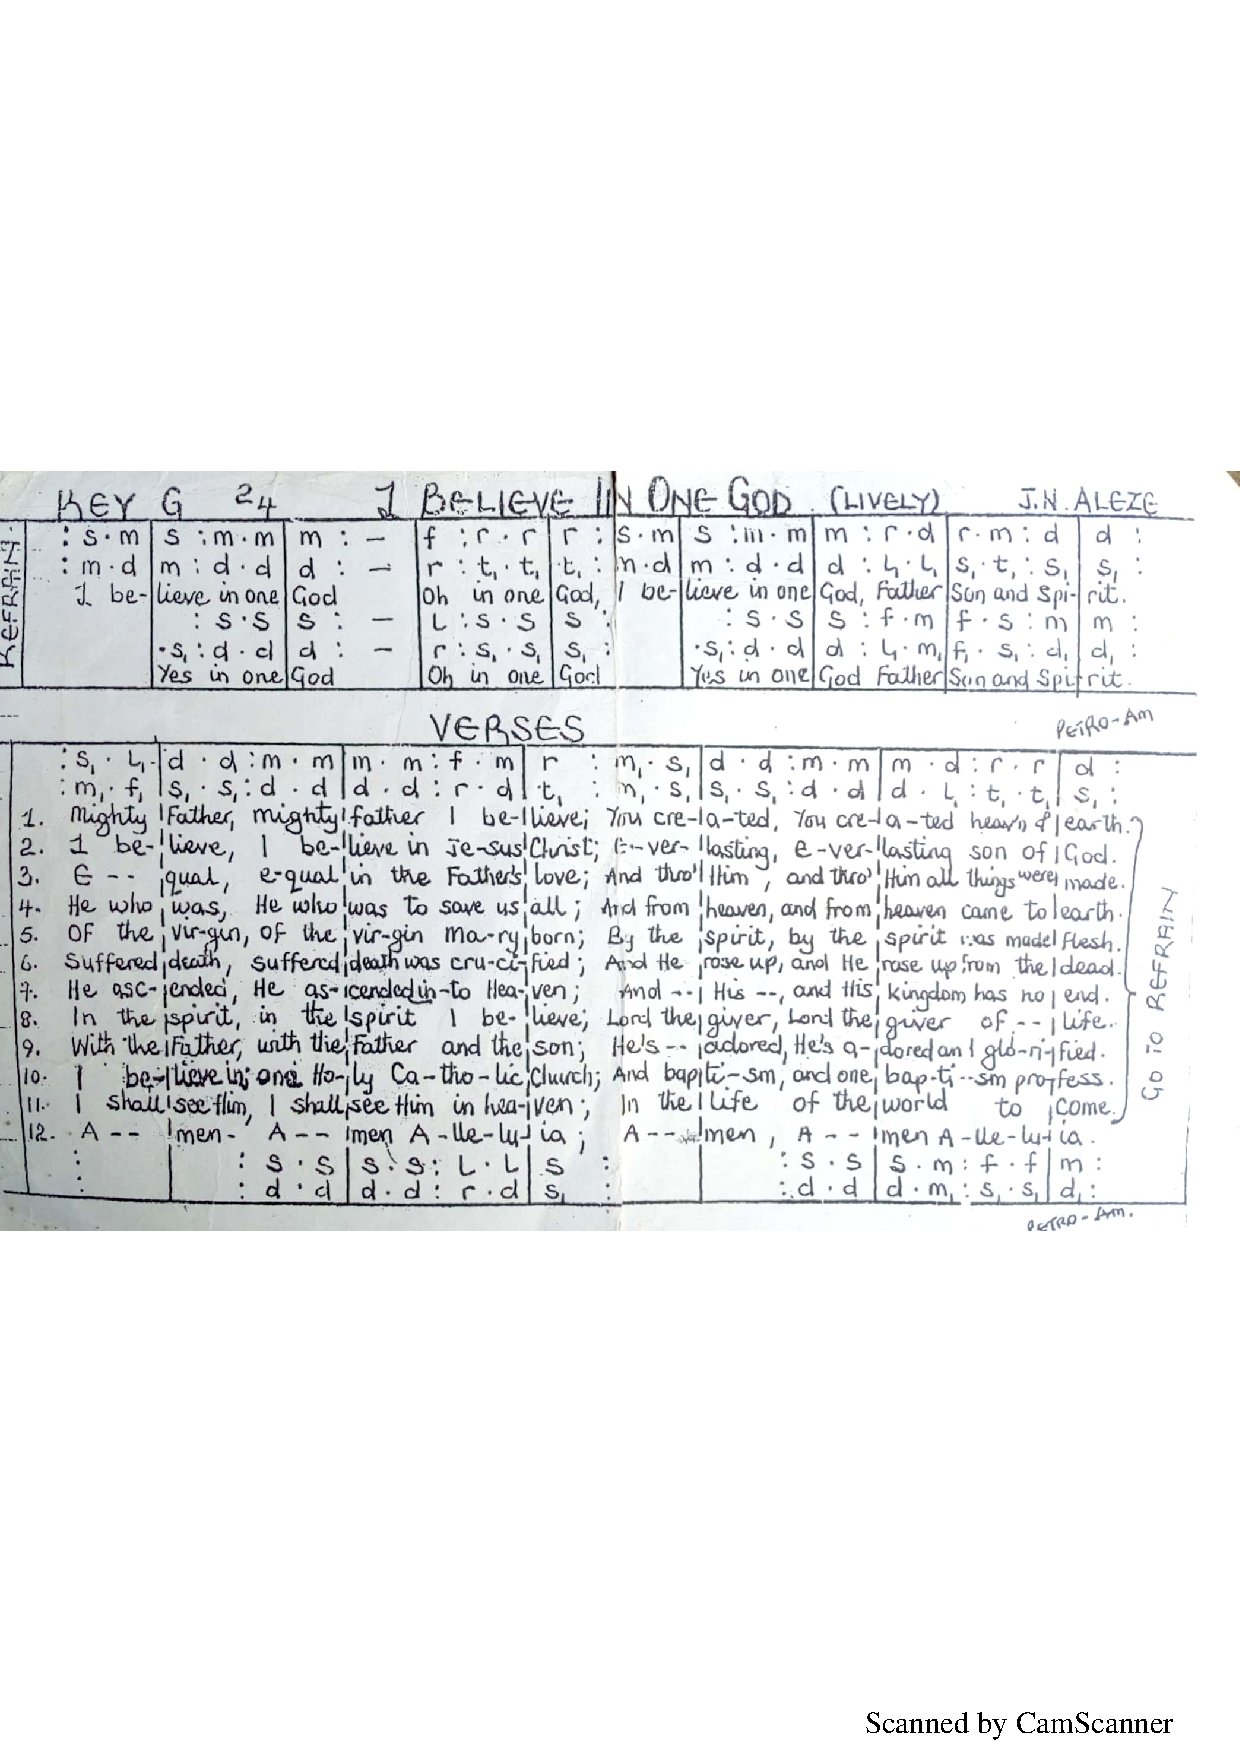 KEY G 24 I BELIEVE IN ONE GOD (LIVELY) J.N. ALEZE
REFRAIN:
: s . m | s : m . m | m : – | f : r . r | r : s . m | s : m . m | m : r . d | r . m : d | d :
: m . d | m : d . d | d : – | r : t₁ . t₁ | t₁ : m . d | m : d . d | d : l₁ . l₁ | s₁ . t₁ : s₁ | s₁ :
I be- | lieve in one | God | Oh in one | God, I be- | lieve in one | God, Father | Son and Spi- | rit.
: s . s | s : – | L : s . s | s : | : s . s | s : f . m | f . s : m | m :
. s₁ : d . d | d : – | r : s₁ . s₁ | s₁ : | . s₁ : d . d | d : l₁ . m₁ | f₁ . s₁ : d₁ | d₁ :
Yes in one | God | Oh in one | God | Yes in one | God Father | Son and Spi | rit.
VERSES PETRO-AM
: s₁ . l₁ . | d . d : m . m | m . m : f . m | r : m₁ . s₁ | d . d : m . m | m . d : r . r | d :
: m₁ . f₁ | s₁ . s₁ : d . d | d . d : r . d | t₁ : m₁ . s₁ | s₁ . s₁ : d . d | d . L₁ : t₁ . t₁ | s₁ :
1. Mighty | Father, mighty | father I be- | lieve; You cre- | a-ted, You cre- | a-ted heav'n & | earth.
2. I be- | lieve, I be- | lieve in Je-sus | Christ; E-ver- | lasting, e-ver- | lasting son of | God.
3. E -- | qual, e-qual | in the Father's | love; And thro' | Him, and thro' | Him all things were | made.
4. He who | was, He who | was to save us | all; And from | heaven, and from | heaven came to | earth.
5. Of the | vir-gin, of the | vir-gin Ma-ry | born; By the | spirit, by the | spirit was made | flesh.
6. Suffered | death, suffered | death was cru-ci- | fied; And He | rose up, and He | rose up from the | dead.
7. He asc- | ended, He as- | cended in-to Hea- | ven; And -- | His --, and His | kingdom has no | end.
8. In the | spirit, in the | spirit I be- | lieve; Lord the | giver, Lord the | giver of -- | life.
9. With the | Father, with the | Father and the | son; He's -- | adored, He's a- | dored and glo-ri- | fied.
10. I be- | lieve in one Ho- | ly Ca-tho-lic | Church; And bap | ti-sm, and one | bap-ti--sm pro | fess.
11. I shall | see Him, I shall | see Him in hea- | ven; In the | life of the | world to | come.
12. A -- | men- A -- | men A-lle-lu- | ia; A -- | men, A -- | men A-lle-lu- | ia.
GO TO REFRAIN
: | : s . s | s . s : L . L | s : | : s . s | s . m : f . f | m :
: | : d . d | d . d : r . d | s₁ : | : d . d | d . m₁ : s₁ . s₁ | d₁ :
PETRO-AM.
Scanned by CamScanner